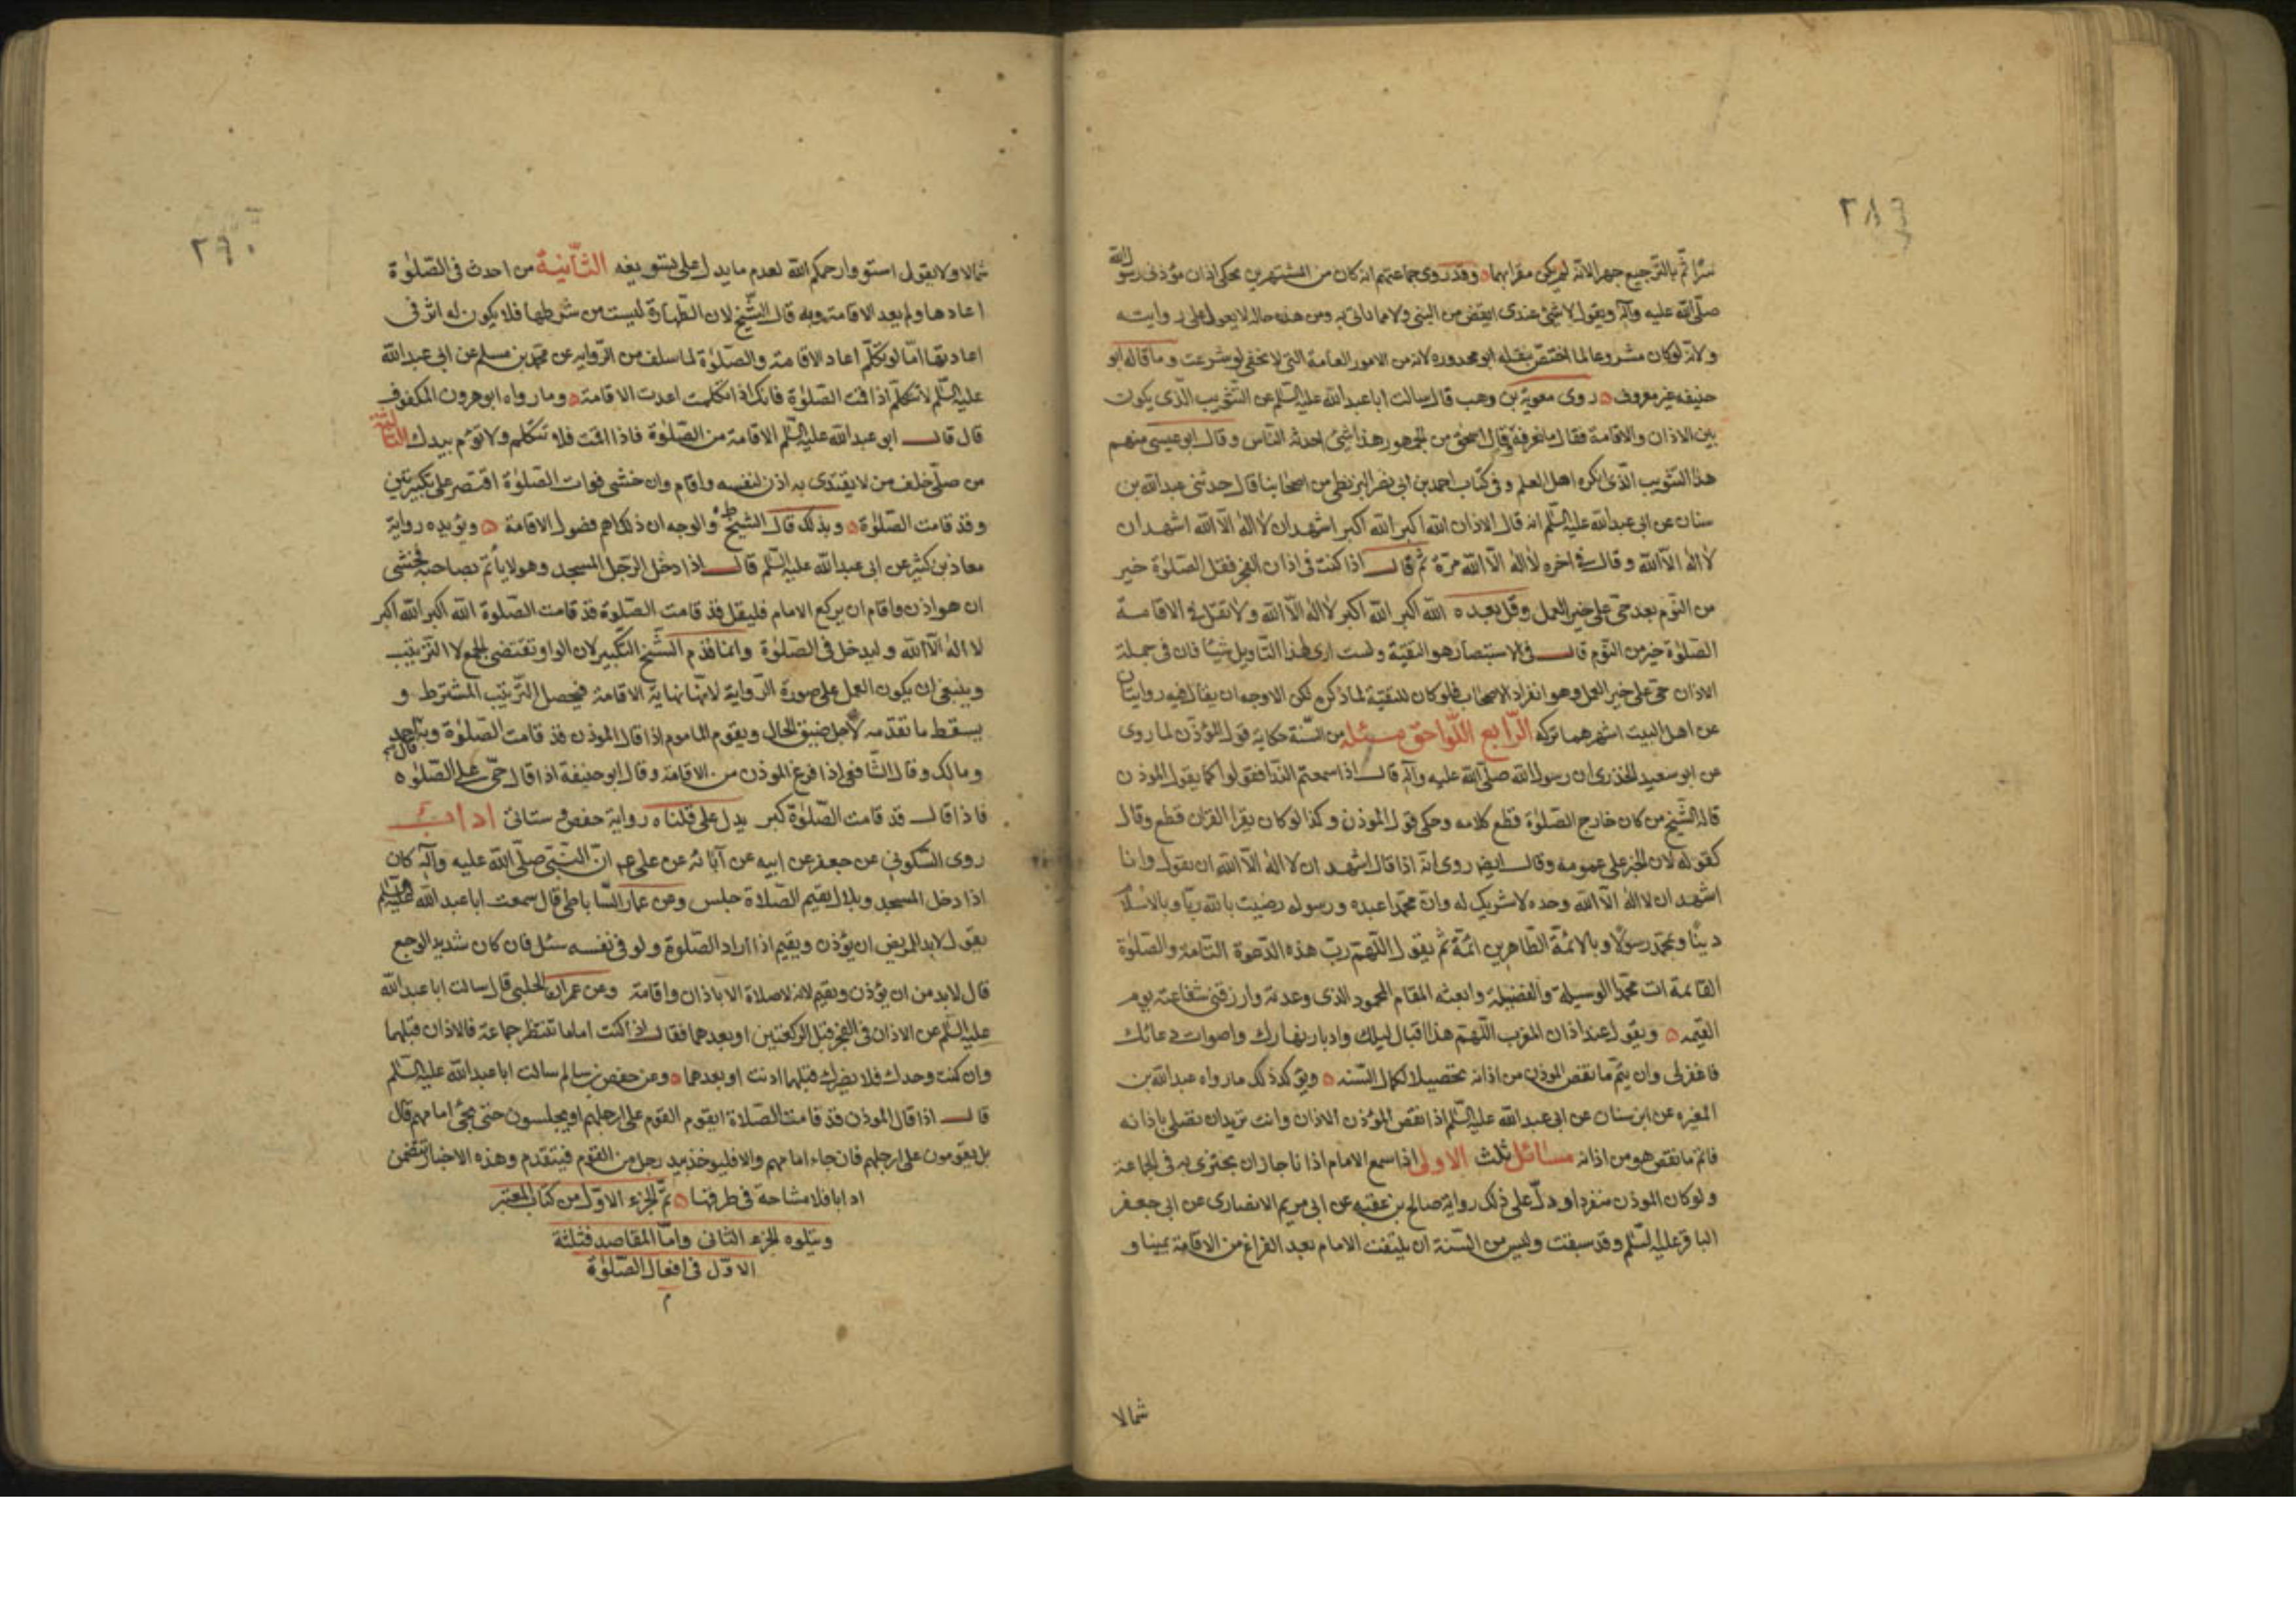 ٢٨٩
سرّا ثم بالترجيع جهرا لانه لم يكن مقرا بهما وقد روى جماعتهم انه كان من المشتهرين يحكى اذان مؤذنى رسول الله
صلّى الله عليه وآله ويقول لا شئ عندى ابغض من النبى ولا مما ذانى به ومن هذه حاله لا يعول على روايته
ولانه لو كان مشروعا لما اختص بنقله ابو محذوره لانه من الامور العامة التى لا تخفى لو شرعت وما قاله ابو
حنيفه غير معروف روى معوية بن وهب قال سالت ابا عبدالله عليه السّلم عن التثويب الّذى يكون
بين الاذان والاقامة فقال ما نعرفه وقال اسحق من الجمهور هذا شئ احدثه النّاس وقال ابو عيسى منهم
هذا التثويب الّذى انكره اهل العلم وفى كتاب احمد بن ابى نصر البزنطى من اصحابنا قال حدثنى عبدالله بن
سنان عن ابى عبدالله عليه السّلم انه قال الاذان الله اكبر الله اكبر اشهد ان لا اله الّا الله اشهد ان
لا اله الّا الله وقال فى اخره لا اله الّا الله مرّة ثم قال اذا كنت فى اذان الفجر فقل الصّلوة خير
من النّوم بعد حىّ على خير العمل وقل بعده الله اكبر الله اكبر لا اله الّا الله ولا تقل فى الاقامة
الصّلوة خير من النّوم قال فى الاستبصار هو للتقية ولست ارى هذا التّاويل شيئا فان فى جملة
الاذان حىّ على خير العمل وهو انفراد الاصحاب فلو كان للتقية لما ذكره لكن الاوجه ان يقال فيه روايتان
عن اهل البيت اشهرهما تركه الرّابع اللّواحق مسئله من السّنة حكاية قول المؤذّن لما روى
عن ابو سعيد الخدرى ان رسول الله صلّى الله عليه وآله قال اذا سمعتم النّدا فقولوا كما يقول الموذن
قال الشّيخ من كان خارج الصّلوة قطع كلامه وحكى قول الموذن وكذا لو كان يقرا القران قطع وقال
كقوله لان الخبر على عمومه وقال ايض روى انّه اذا قال اشهد ان لا اله الّا الله ان يقول وانا
اشهد ان لا اله الّا الله وحده لا شريك له وانّ محمّدا عبده ورسوله رضيت بالله ربّا وبالاسلام
دينا وبمحمّد رسولا وبالائمّة الطّاهرين ائمّة ثمّ يقول اللّهمّ ربّ هذه الدّعوة التّامة والصّلوة
القائمة ات محمّدا الوسيلة والفضيلة وابعثه المقام المحمود الذى وعدته وارزقنى شفاعته يوم
القيمه ويقول عند اذان المغرب اللّهمّ هذا اقبال ليلك وادبار نهارك واصوات دعائك
فاغفر لى وان يتمّ ما نقص الموذن من اذانه تحصيلا لكمال السّنه ويؤكد ذلك ما رواه عبدالله بن
المغيره عن ابن سنان عن ابى عبدالله عليه السّلم اذا نقص المؤذن الاذان وانت تريد ان تصلى باذانه
فاتم ما نقص هو من اذانه مسائل ثلث الاولى اذا سمع الامام اذانا جاز ان يجتزى به فى الجماعة
ولو كان الموذن منفردا ودلّ على ذلك رواية صالح بن عقبه عن ابى مريم الانصارى عن ابى جعفر
الباقر عليه السّلم وقد سبقت وليس من السّنة ان يلتفت الامام بعد الفراغ من الاقامة يمينا و
شمالا
٢٩٠
شمالا ولا يقول استووا رحمكم الله لعدم ما يدل على تسويغه الثّانية من احدث فى الصّلوة
اعادها ولم يعد الاقامة وبه قال الشّيخ لان الطّهارة ليست من شرطها فلا يكون له اثر فى
اعادتها امّا لو تكلّم اعاد الاقامة والصّلوة لما سلف من الرّوايه عن محمّد بن مسلم عن ابى عبدالله
عليه السّلم لا تتكلّم اذا اقمت الصّلوة فانك اذا تكلمت اعدت الاقامة وما رواه ابو هرون المكفوف
قال قال ابى عبدالله عليه السّلم الاقامة من الصّلوة فاذا اقمت فلا تتكلم ولا تؤم بيدك الثالثة
من صلّى خلف من لا يقتدى به اذن لنفسه واقام وان خشى فوات الصّلوة اقتصر على تكبيرتين
وقد قامت الصّلوة وبذلك قال الشيخ ط والوجه ان ذلك اهم فصول الاقامة ويؤيده رواية
معاذ بن كثير عن ابى عبدالله عليه السّلم قال اذا دخل الرّجل المسجد وهو لا يأتمّ بصاحبه فخشى
ان هو اذن واقام ان يركع الامام فليقل قد قامت الصّلوة قد قامت الصّلوة الله اكبر الله اكبر
لا اله الّا الله وليدخل فى الصّلوة وانما قدّم الشّيخ التّكبير لان الواو تقتضى الجمع لا التّرتيب
وينبغى ان يكون العمل على صورة الرّواية لانّها نهاية الاقامة فيحصل التّرتيب المشترط و
يسقط ما تقدّمه لاجل ضيق الحال ويقوم الماموم اذا قال الموذن قد قامت الصّلوة وبه قال احمد
ومالك وقال الشّافعى اذا فرغ الموذن من الاقامة وقال ابو حنيفة اذا قال حىّ على الصّلوه
فاذا قال قد قامت الصّلوة كبر يدل على ما قلناه رواية حفص وستاتى اداب
روى السّكونى عن جعفر عن ابيه عن آبائه عن على ع انّ النّبىّ صلّى الله عليه وآله كان
اذا دخل المسجد وبلال يقيم الصّلاة جلس وعن عمار السّاباطى قال سمعت ابا عبدالله عليه السّلم
يقول لا بد للمريض ان يؤذن ويقيم اذا اراد الصّلوة ولو فى نفسه سئل فان كان شديد الوجع
قال لا بد من ان يؤذن ويقيم لانه لا صلاة الا باذان واقامة وعن عمران الحلبى قال سالت ابا عبدالله
عليه السّلم عن الاذان فى الفجر قبل الركعتين او بعدهما فقال اذا كنت اماما تنتظر جماعة فالاذان قبلهما
وان كنت وحدك فلا يضرك قبلهما اذنت او بعدهما وعن حفص بن سالم سالت ابا عبدالله عليه السّلم
قال اذا قال الموذن قد قامت الصّلاة ايقوم القوم على ارجلهم او يجلسون حتى يجئ امامهم قال
بل يقومون على ارجلهم فان جاء امامهم والا فليوخذ بيد رجل من القوم فيتقدم وهذه الاخبار تتضمن
ادابا فلا مشاحة فى طرقها تمّ الجزء الاوّل من كتاب المعتبر
ويتلوه الجزء الثانى وامّا المقاصد فثلثة
الاوّل فى افعال الصّلوة
م